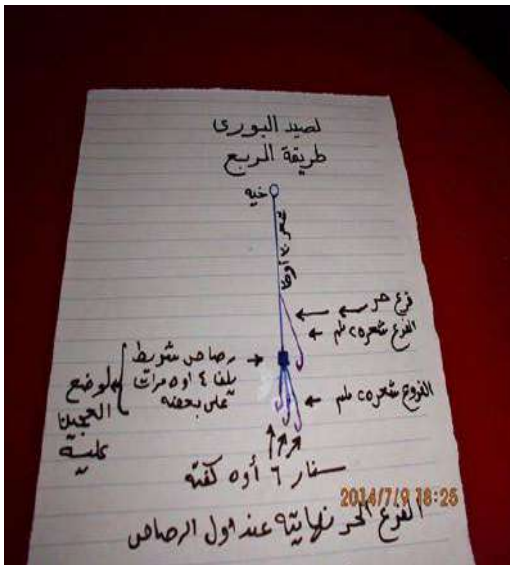 لصيد البورى
طريقة الربع
خيه
شعر
فرع حر
الفرع شعر ٢٥ ملم
رصاص شريط
يلف ٤ او ٥ مرات
على بعضه
لوضع
العجينة
عليه
الفروع شعر ٢٥ ملم
سنار ٦ أو ٥ كفته
2014/7/9 18:25
الفرع الحر نهايته عند اول الرصاص